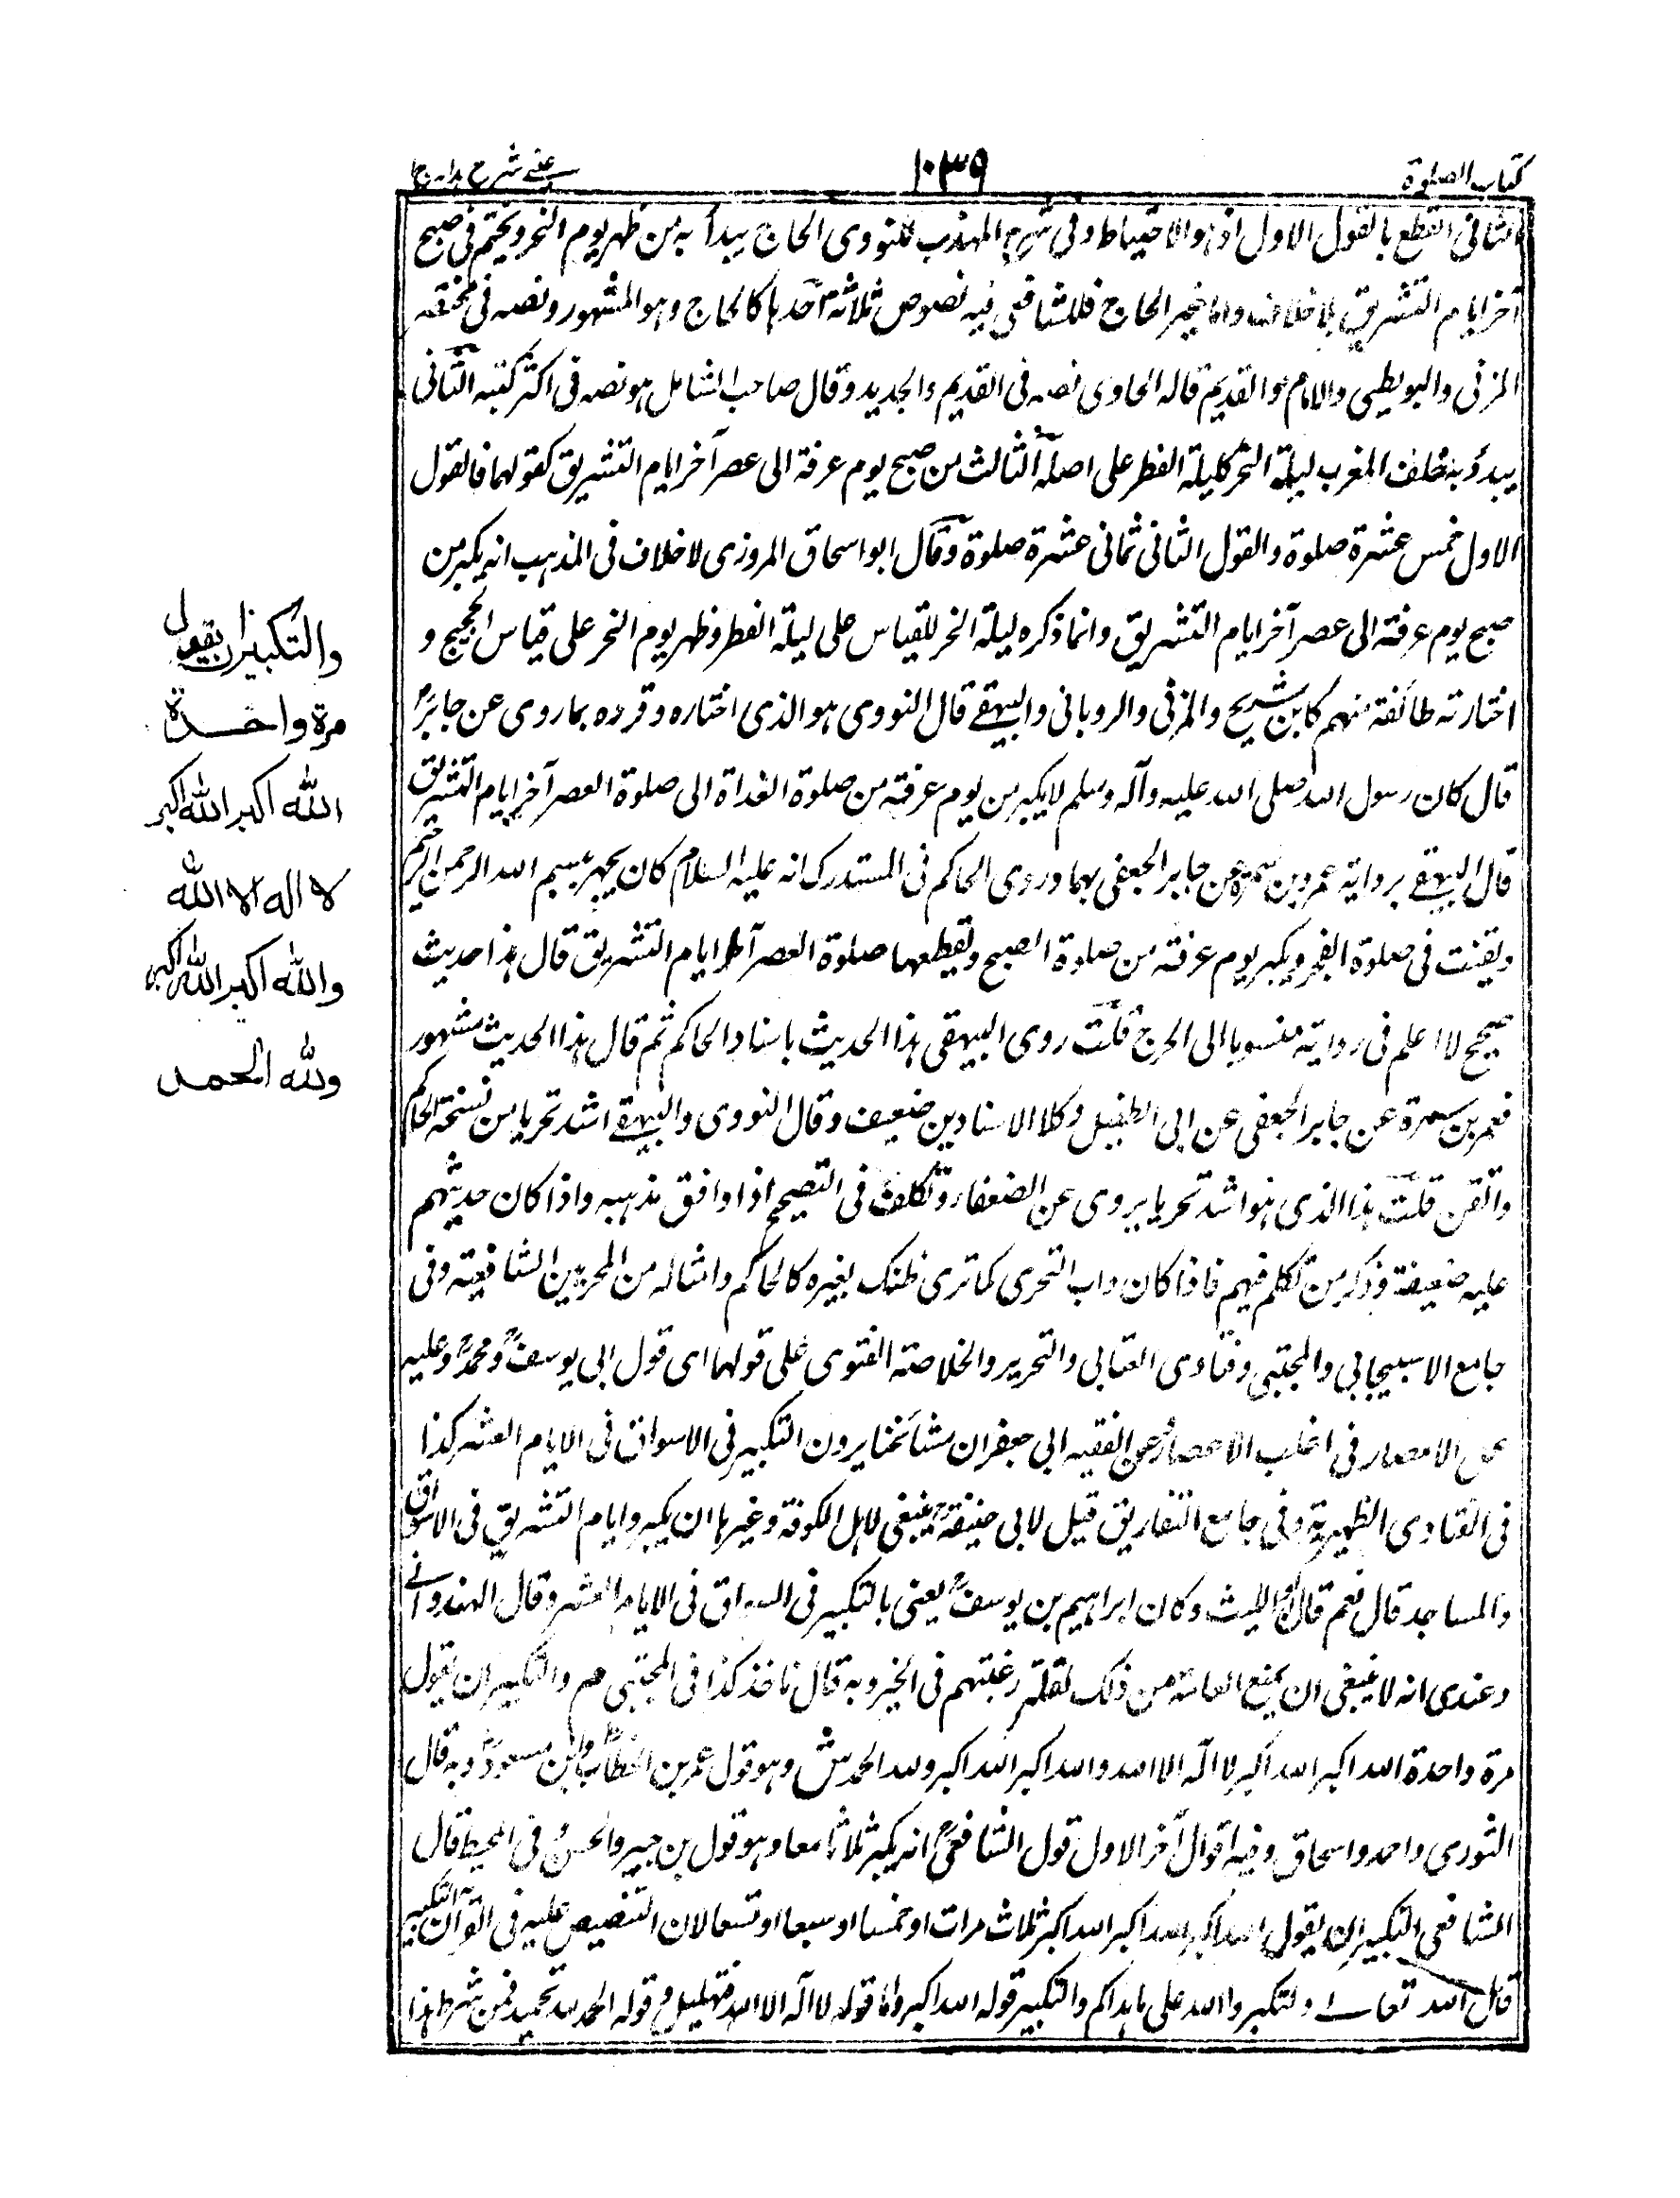 كتاب الصلوة
١٠٣٩
عينى شرح هدايه ج ا
الثانى القطع بالقول الاول اذ هو الاحتياط وفى شرح المهذب للنووى الحاج يبدأ به من ظهر يوم النحر ويختم فى صبح
آخر ايام التشريق بلا خلاف واما غير الحاج فللشافعى فيه نصوص ثلاثة احدها كالحاج وهو المشهور ونصه فى مختصر
المزنى والبويطى والامام والقديم قاله الحاوى نصه فى القديم والجديد وقال صاحب الشامل هو نصه فى اكثر كتبه الثانى
يبدؤ به خلف المغرب ليلة النحر كليلة الفطر على اصله الثالث من صبح يوم عرفة الى عصر آخر ايام التشريق كقولهما فالقول
الاول خمس عشرة صلوة والقول الثانى ثمانى عشرة صلوة وقال ابو اسحاق المروزى لا خلاف فى المذهب انه يكبر من
صبح يوم عرفة الى عصر آخر ايام التشريق وانما ذكره ليلة النحر للقياس على ليلة الفطر وظهر يوم النحر على قياس الحجيج و
اختارته طائفة منهم كابن شريح والمزنى والرويانى والبيهقے قال النووى هو الذى اختاره وقرره بما روى عن جابر رض
قال كان رسول الله صلى الله عليه وآله وسلم لا يكبر من يوم عرفة من صلوة الغداة الى صلوة العصر آخر ايام التشريق
قال البيهقے برواية عمرو بن سمرة عن جابر الجعفى بهما وروى الحاكم فى المستدرك انه عليه السلام كان يجهر ببسم الله الرحمن الرحيم
ويقنت فى صلوة الفجر ويكبر يوم عرفة من صلوة الصبح ويقطعها صلوة العصر آخر ايام التشريق قال هذا حديث
صحيح لا اعلم فى رواية منسوبا الى الجرح قلت روى البيهقى هذا الحديث باسناد الحاكم ثم قال هذا الحديث مشهور
فعمر بن سمرة عن جابر الجعفى عن ابى الطفيل وكلا الاسنادين ضعيف وقال النووى والبيهقے اشد تحريا من نسخة الحاكم
واتقن قلت هذا الذى هو اشد تحريا يروى عن الضعفاء وتكلف فى التصحيح اذا وافق مذهبه واذا كان حديثهم
عليه ضعيفة وذكر من تكلم فيهم فاذا كان داب التحرى كما ترى ظنك بغيره كالحاكم وامثاله من المحررين الشافعية وفى
جامع الاسبيجابى والمجتبى وفتاوى العتابى والتحرير والخلاصة الفتوى على قولهما اى قول ابى يوسف ومحمد وعليه
عمل الامصار فى اغلب الاعصار وعن الفقيه ابى جعفر ان مشائخنا يرون التكبير فى الاسواق فى الايام العشر كذا
فى الفتاوى الظهيرية وفى جامع التفاريق قيل لابى حنيفة ينبغى لاهل الكوفة وغيرها ان يكبروا ايام التشريق فى الاسواق
والمساجد قال نعم قال ابو الليث وكان ابراهيم بن يوسف يفتى بالتكبير فى السواق فى الايام العشر وقال الهندوانے
وعندى انه لا ينبغى ان يمنع العامة من ذلك لقلة رغبتهم فى الخير وبه قال ناخذ كذا فى المجتبى م والتكبير ان يقول
مرة واحدة الله اكبر الله اكبر لا اله الا الله والله اكبر الله اكبر ولله الحمد ش وهو قول عمر بن الخطاب وابن مسعود وبه قال
الثورى واحمد واسحاق وفيه اقوال أخر الاول قول الشافعى انه يكبر ثلاثا معا وهو قول بن جبير والحسن وفى المحيط قال
الشافعى التكبير ان يقول الله اكبر الله اكبر الله اكبر ثلاث مرات او خمسا او سبعا او تسعا لان التنصيص عليه فى القرآن التكبير
قال الله تعالے ولتكبروا الله على ما هداكم والتكبير قوله الله اكبر واما قوله لا اله الا الله فتهليل وقوله الحمد لله تحميد فمن شرط هذا
والتكبير ان يقول
مرة واحدة
الله اكبر الله اكبر
لا اله الا الله
والله اكبر الله اكبر
ولله الحمد